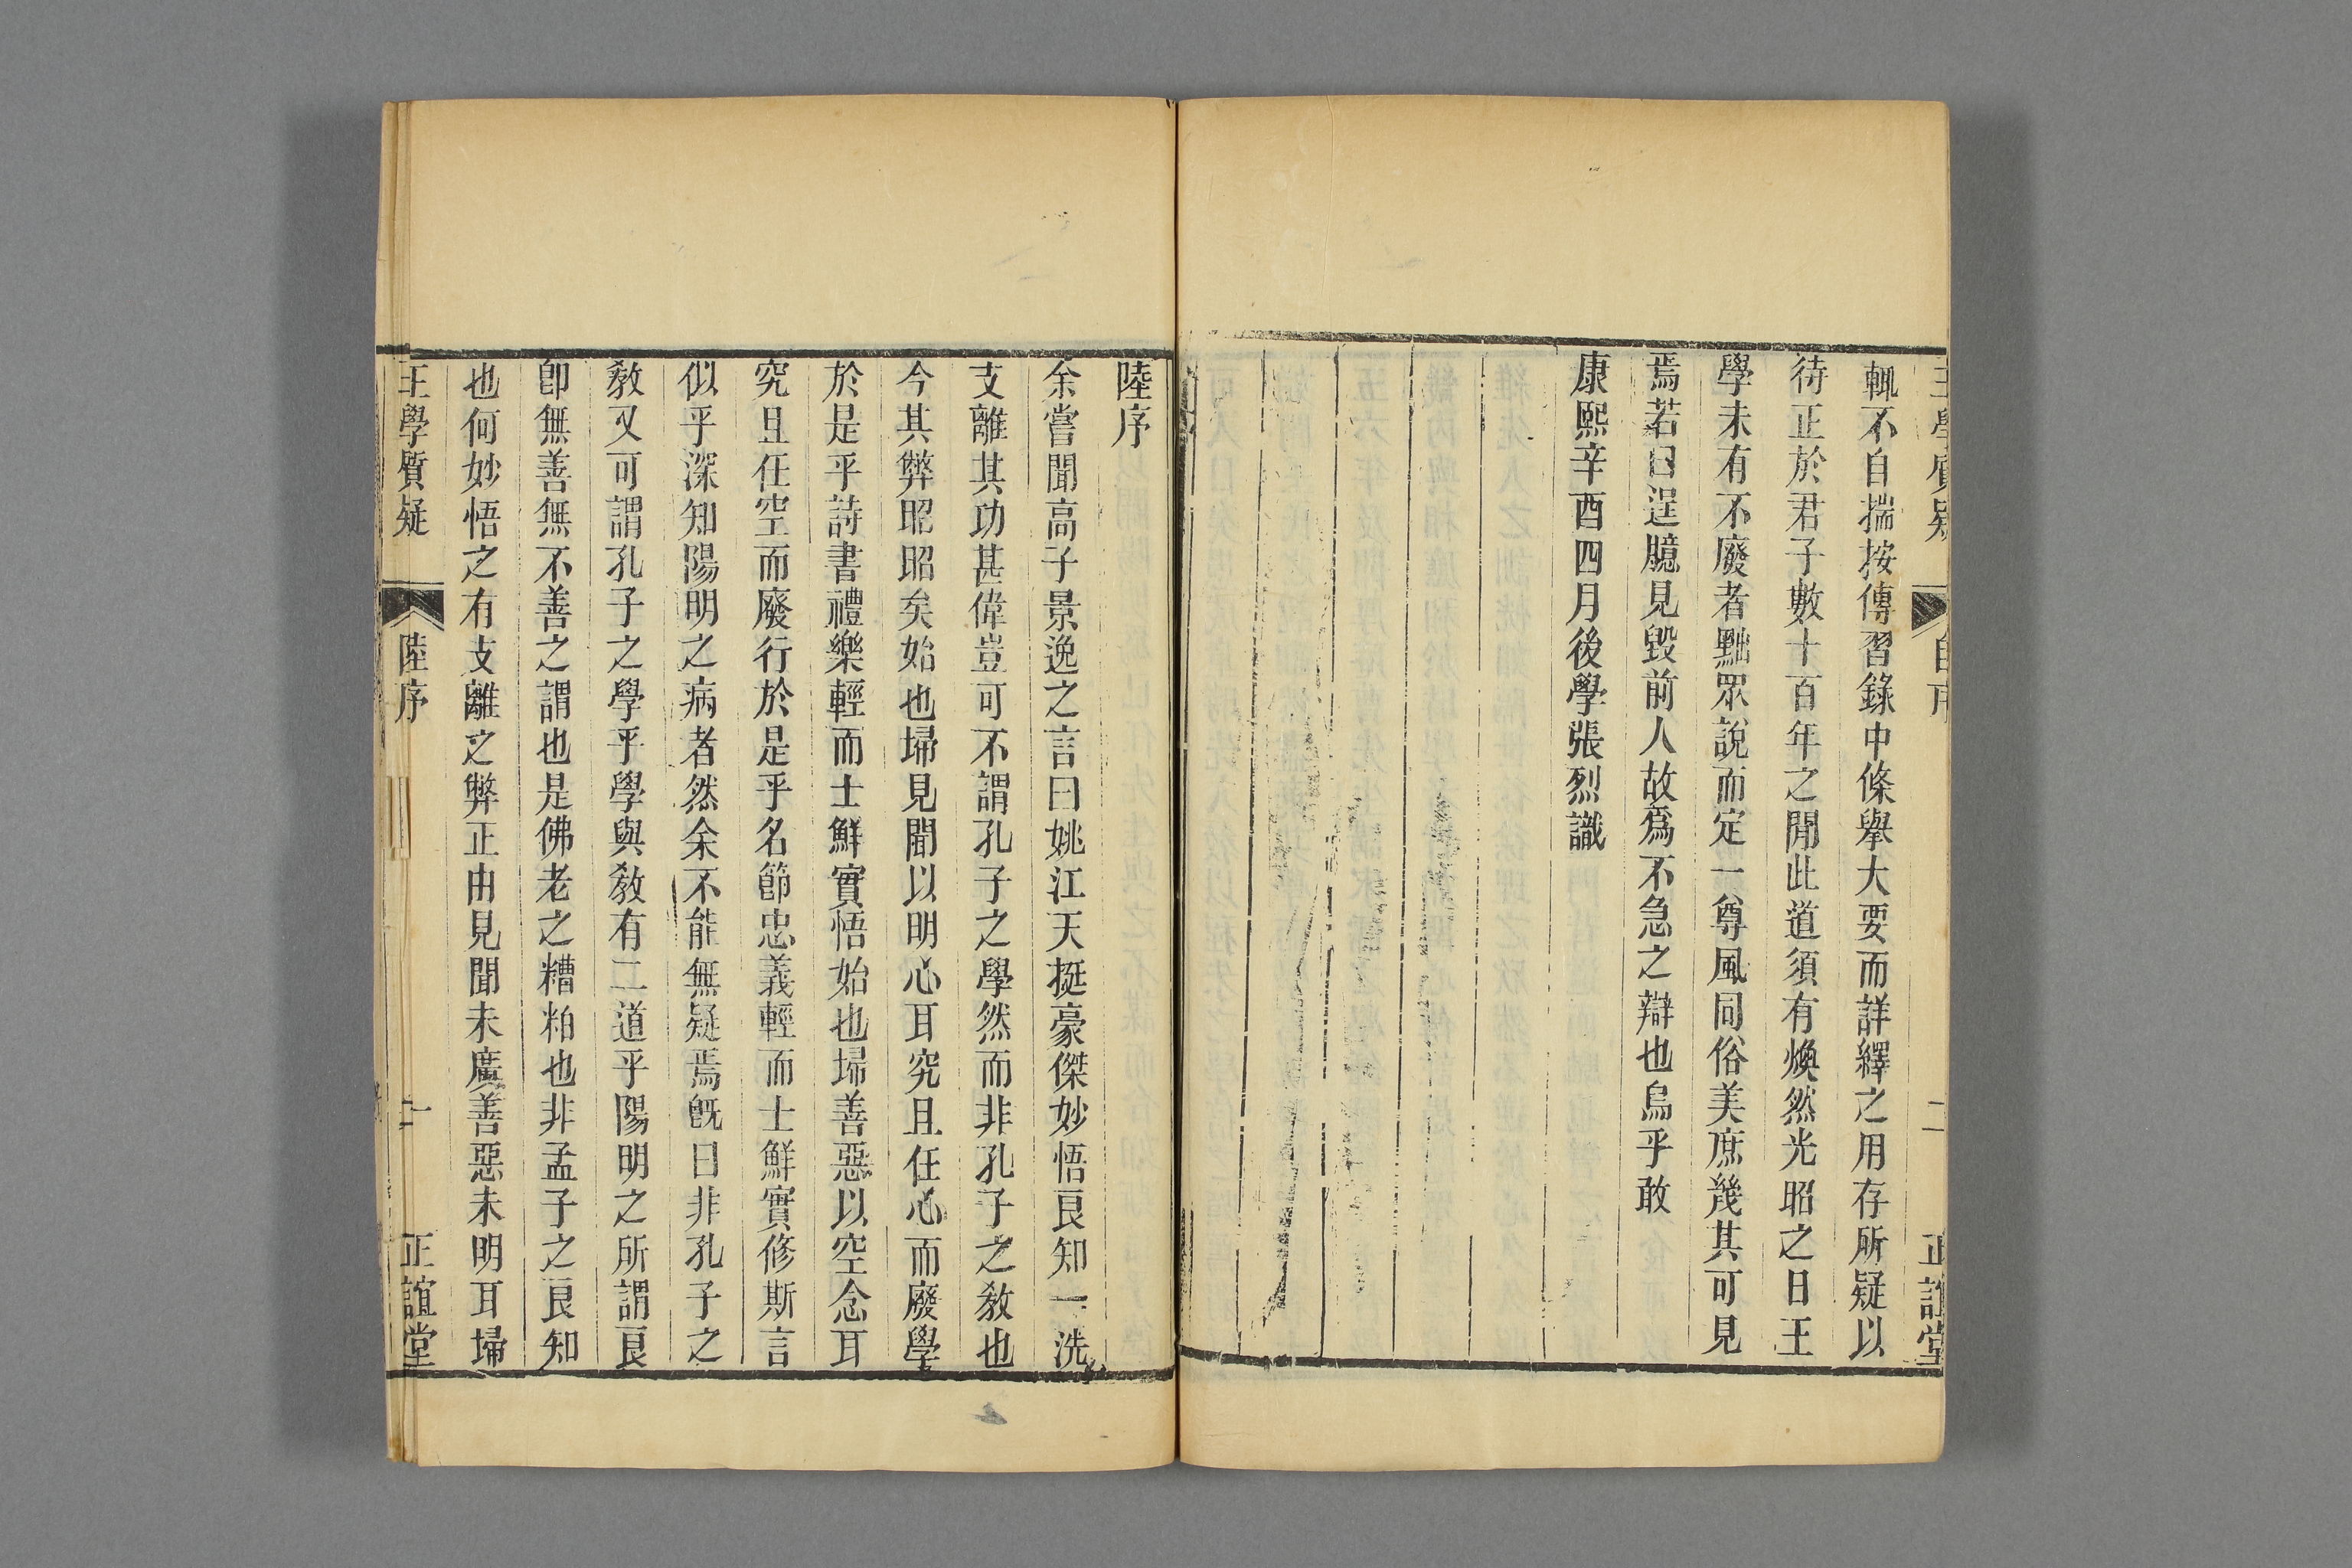 王學質疑 自序 二 正誼堂
輒不自揣按傳習錄中條舉大要而詳繹之用存所疑以
待正於君子數十百年之閒此道須有煥然光昭之日王
學未有不廢者黜眾說而定一尊風同俗美庶幾其可見
焉若曰逞臆見毀前人故爲不急之辯也烏乎敢
康熙辛酉四月後學張烈識
陸序
余嘗聞高子景逸之言曰姚江天挺豪傑妙悟良知一洗
支離其功甚偉豈可不謂孔子之學然而非孔子之敎也
今其弊昭昭矣始也埽見聞以明心耳究且任心而廢學
於是乎詩書禮樂輕而士鮮實悟始也埽善惡以空念耳
究且任空而廢行於是乎名節忠義輕而士鮮實修斯言
似乎深知陽明之病者然余不能無疑焉旣曰非孔子之
敎又可謂孔子之學乎學與敎有二道乎陽明之所謂良
卽無善無不善之謂也是佛老之糟粕也非孟子之良知
也何妙悟之有支離之弊正由見聞未廣善惡未明耳埽
王學質疑 陸序 一 正誼堂